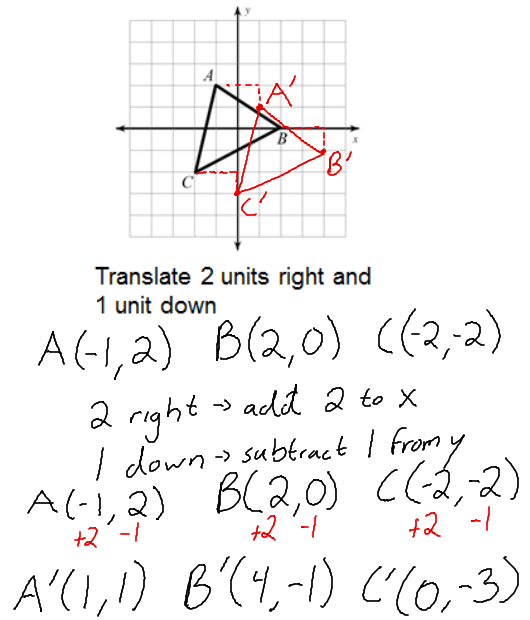 y
A
A'
B
x
B'
C
C'
Translate 2 units right and
1 unit down
A(-1,2) B(2,0) C(-2,-2)
2 right → add 2 to x
1 down → subtract 1 from y
A(-1,2) B(2,0) C(-2,-2)
+2 -1 +2 -1 +2 -1
A'(1,1) B'(4,-1) C'(0,-3)